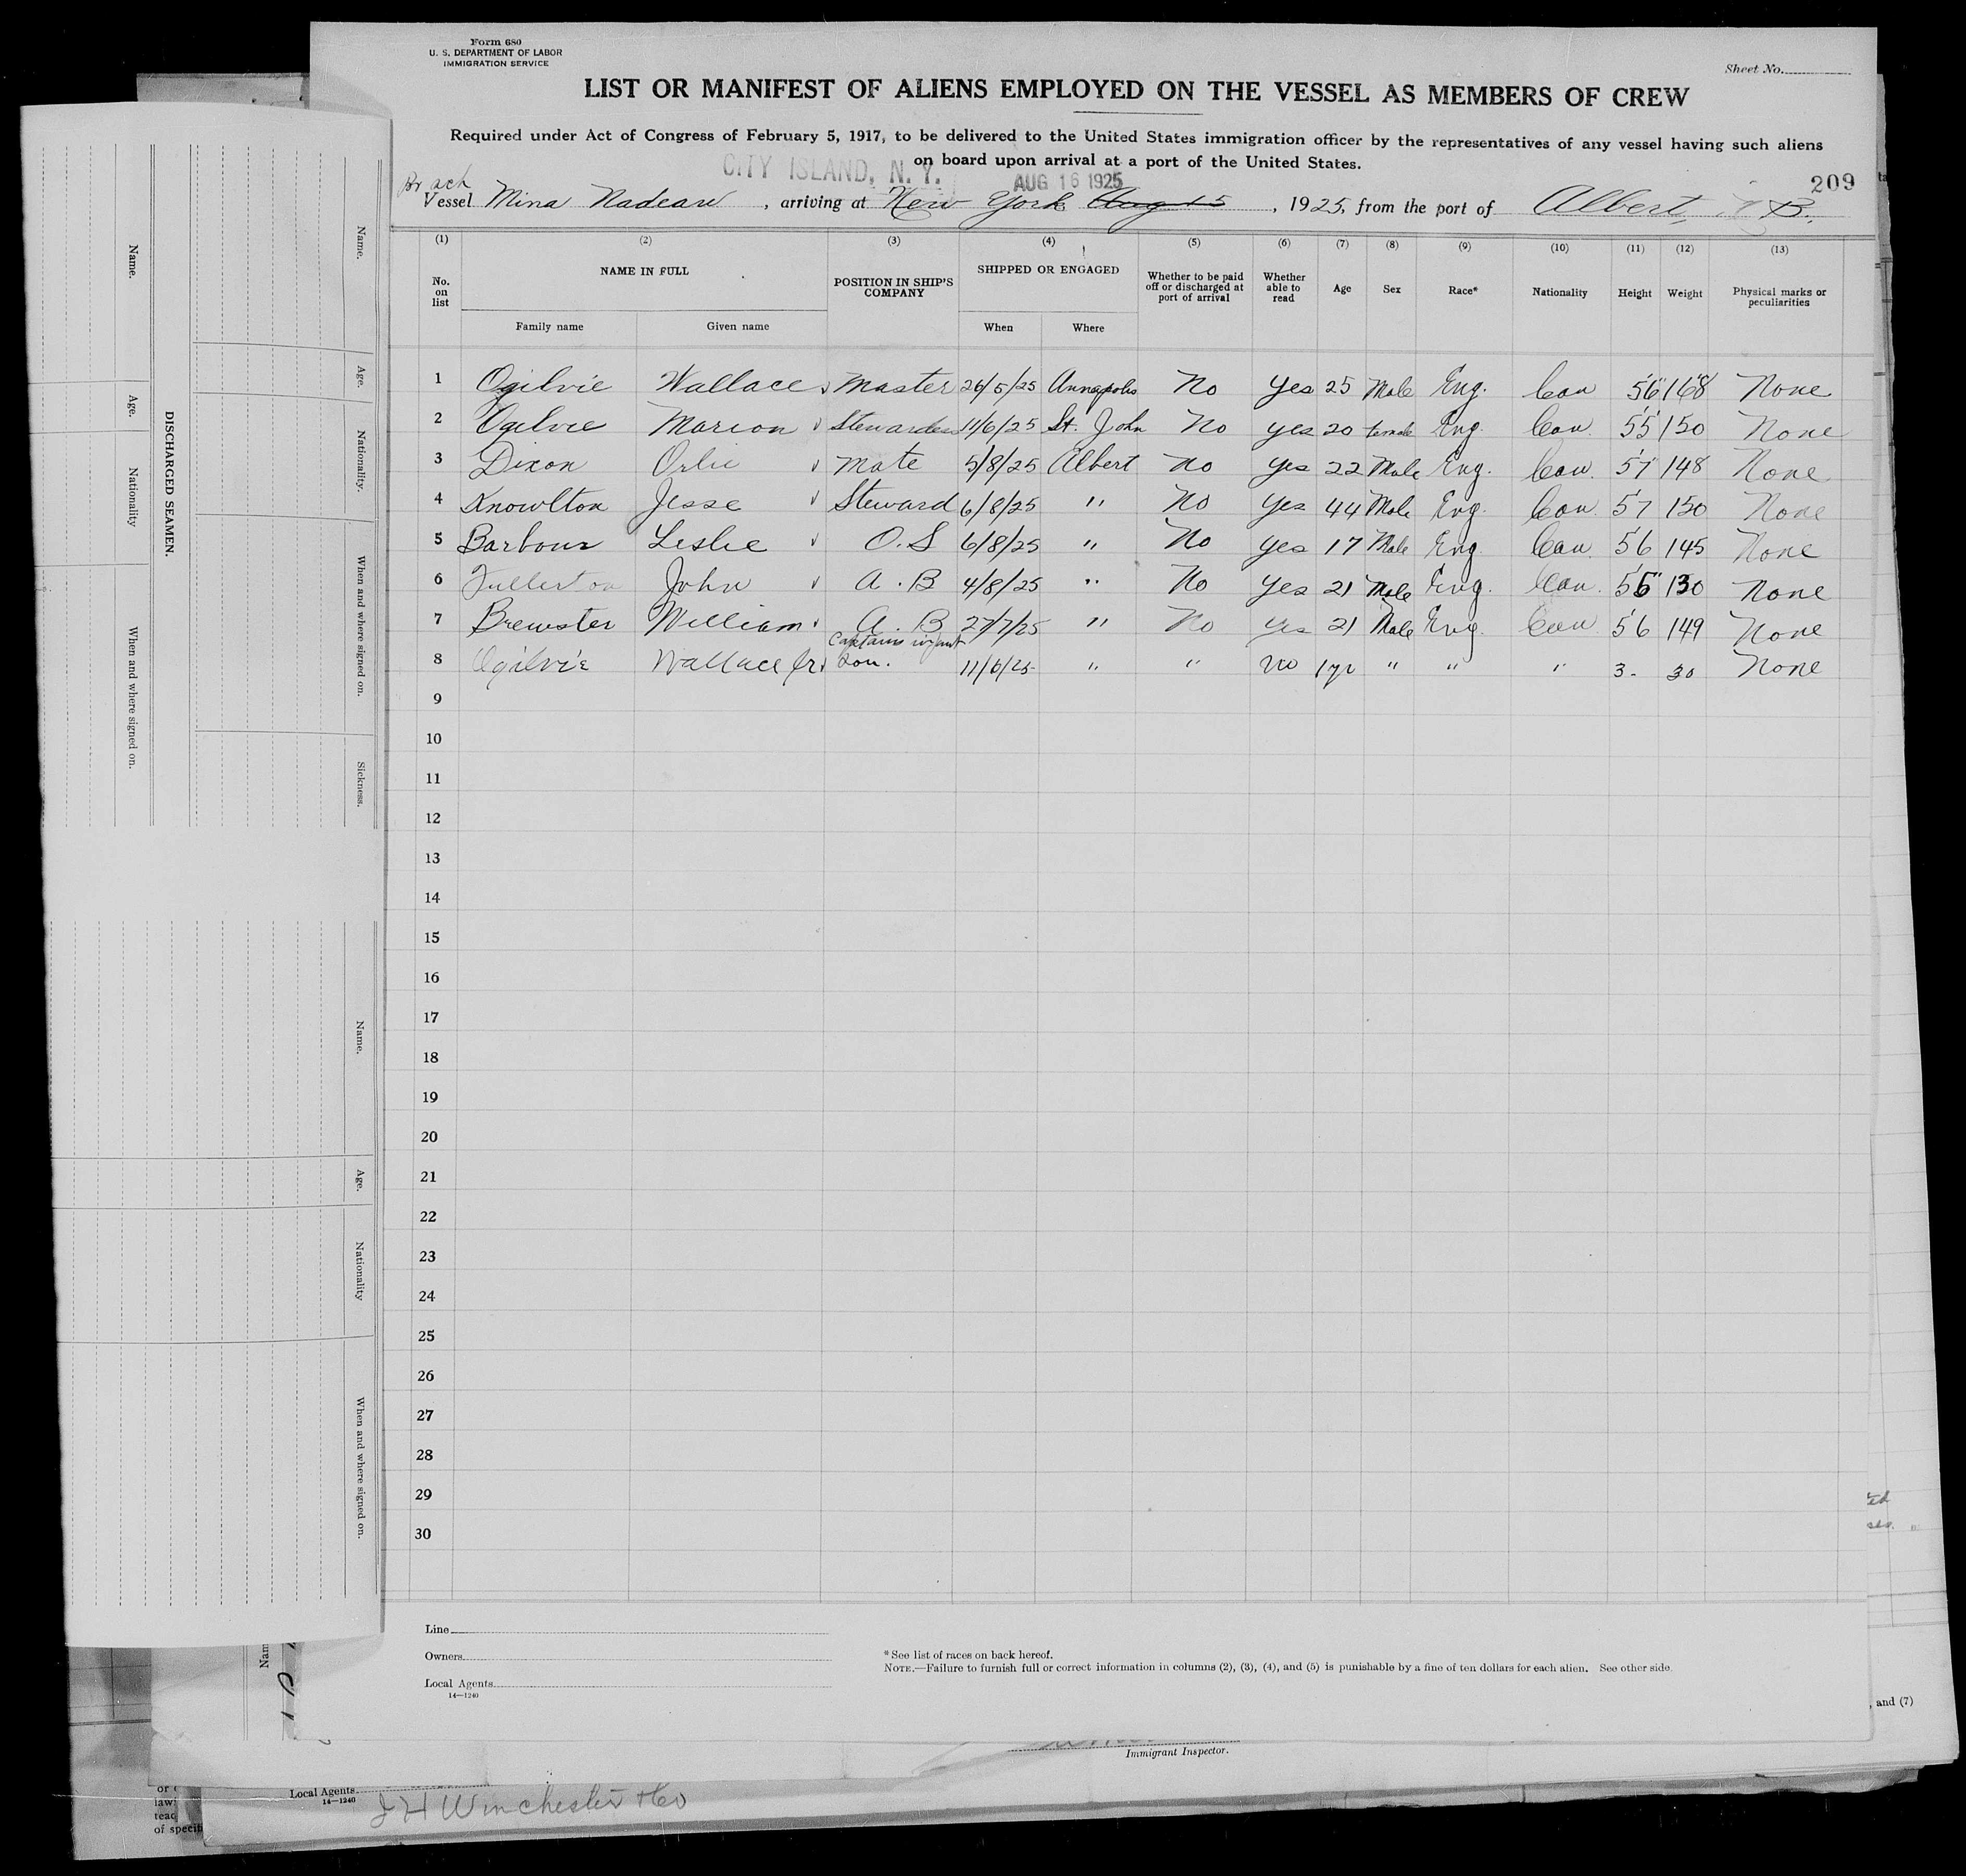 Form 680
U. S. DEPARTMENT OF LABOR
IMMIGRATION SERVICE
Sheet No.
LIST OR MANIFEST OF ALIENS EMPLOYED ON THE VESSEL AS MEMBERS OF CREW
Required under Act of Congress of February 5, 1917, to be delivered to the United States immigration officer by the representatives of any vessel having such aliens
on board upon arrival at a port of the United States.
CITY ISLAND, N. Y. AUG 16 1925
209
Br sch
Vessel Mina Nadeau, arriving at New York Aug 15, 1925, from the port of Albert, N B.
(1) (2) (3) (4) (5) (6) (7) (8) (9) (10) (11) (12) (13)
No. on list NAME IN FULL POSITION IN SHIP'S COMPANY SHIPPED OR ENGAGED Whether to be paid off or discharged at port of arrival Whether able to read Age Sex Race* Nationality Height Weight Physical marks or peculiarities
Family name Given name When Where
1 Ogilvie Wallace Master 26/5/25 Annapolis No Yes 25 Male Eng. Can 5'6" 168 None
2 Ogilvie Marion Stewardess 11/6/25 St. John No yes 20 female Eng. Can. 5'5' 150 None
3 Dixon Orlie Mate 5/8/25 Albert No yes 22 Male Eng. Can. 5'7' 148 None
4 Knowlton Jesse Steward 6/8/25 " No yes 44 Male Eng. Can 5'7 150 None
5 Barbour Leslie O.S 6/8/25 " No yes 17 Male Eng. Can. 5'6 145 None
6 Fullerton John A.B 4/8/25 " No yes 21 Male Eng. Can. 130 None
7 Brewster William A.B 27/7/25 " No yes 21 Male Eng. Can 5'6 149 None
8 Ogilvie Wallace Jr Captains infant Son. 11/6/25 " " no 1yr " " " 3- 30 None
9
10
11
12
13
14
15
16
17
18
19
20
21
22
23
24
25
26
27
28
29
30
Line
Owners
Local Agents
14—1240
*See list of races on back hereof.
NOTE.—Failure to furnish full or correct information in columns (2), (3), (4), and (5) is punishable by a fine of ten dollars for each alien. See other side.
, and (7)
Immigrant Inspector.
Local Agents
14—1240
J H Winchester & Co
of specifi
DISCHARGED SEAMEN.
Name.
Age.
Nationality
When and where signed on.
Name.
Age.
Nationality.
When and where signed on.
Sickness.
Name.
Age.
Nationality
When and where signed on.